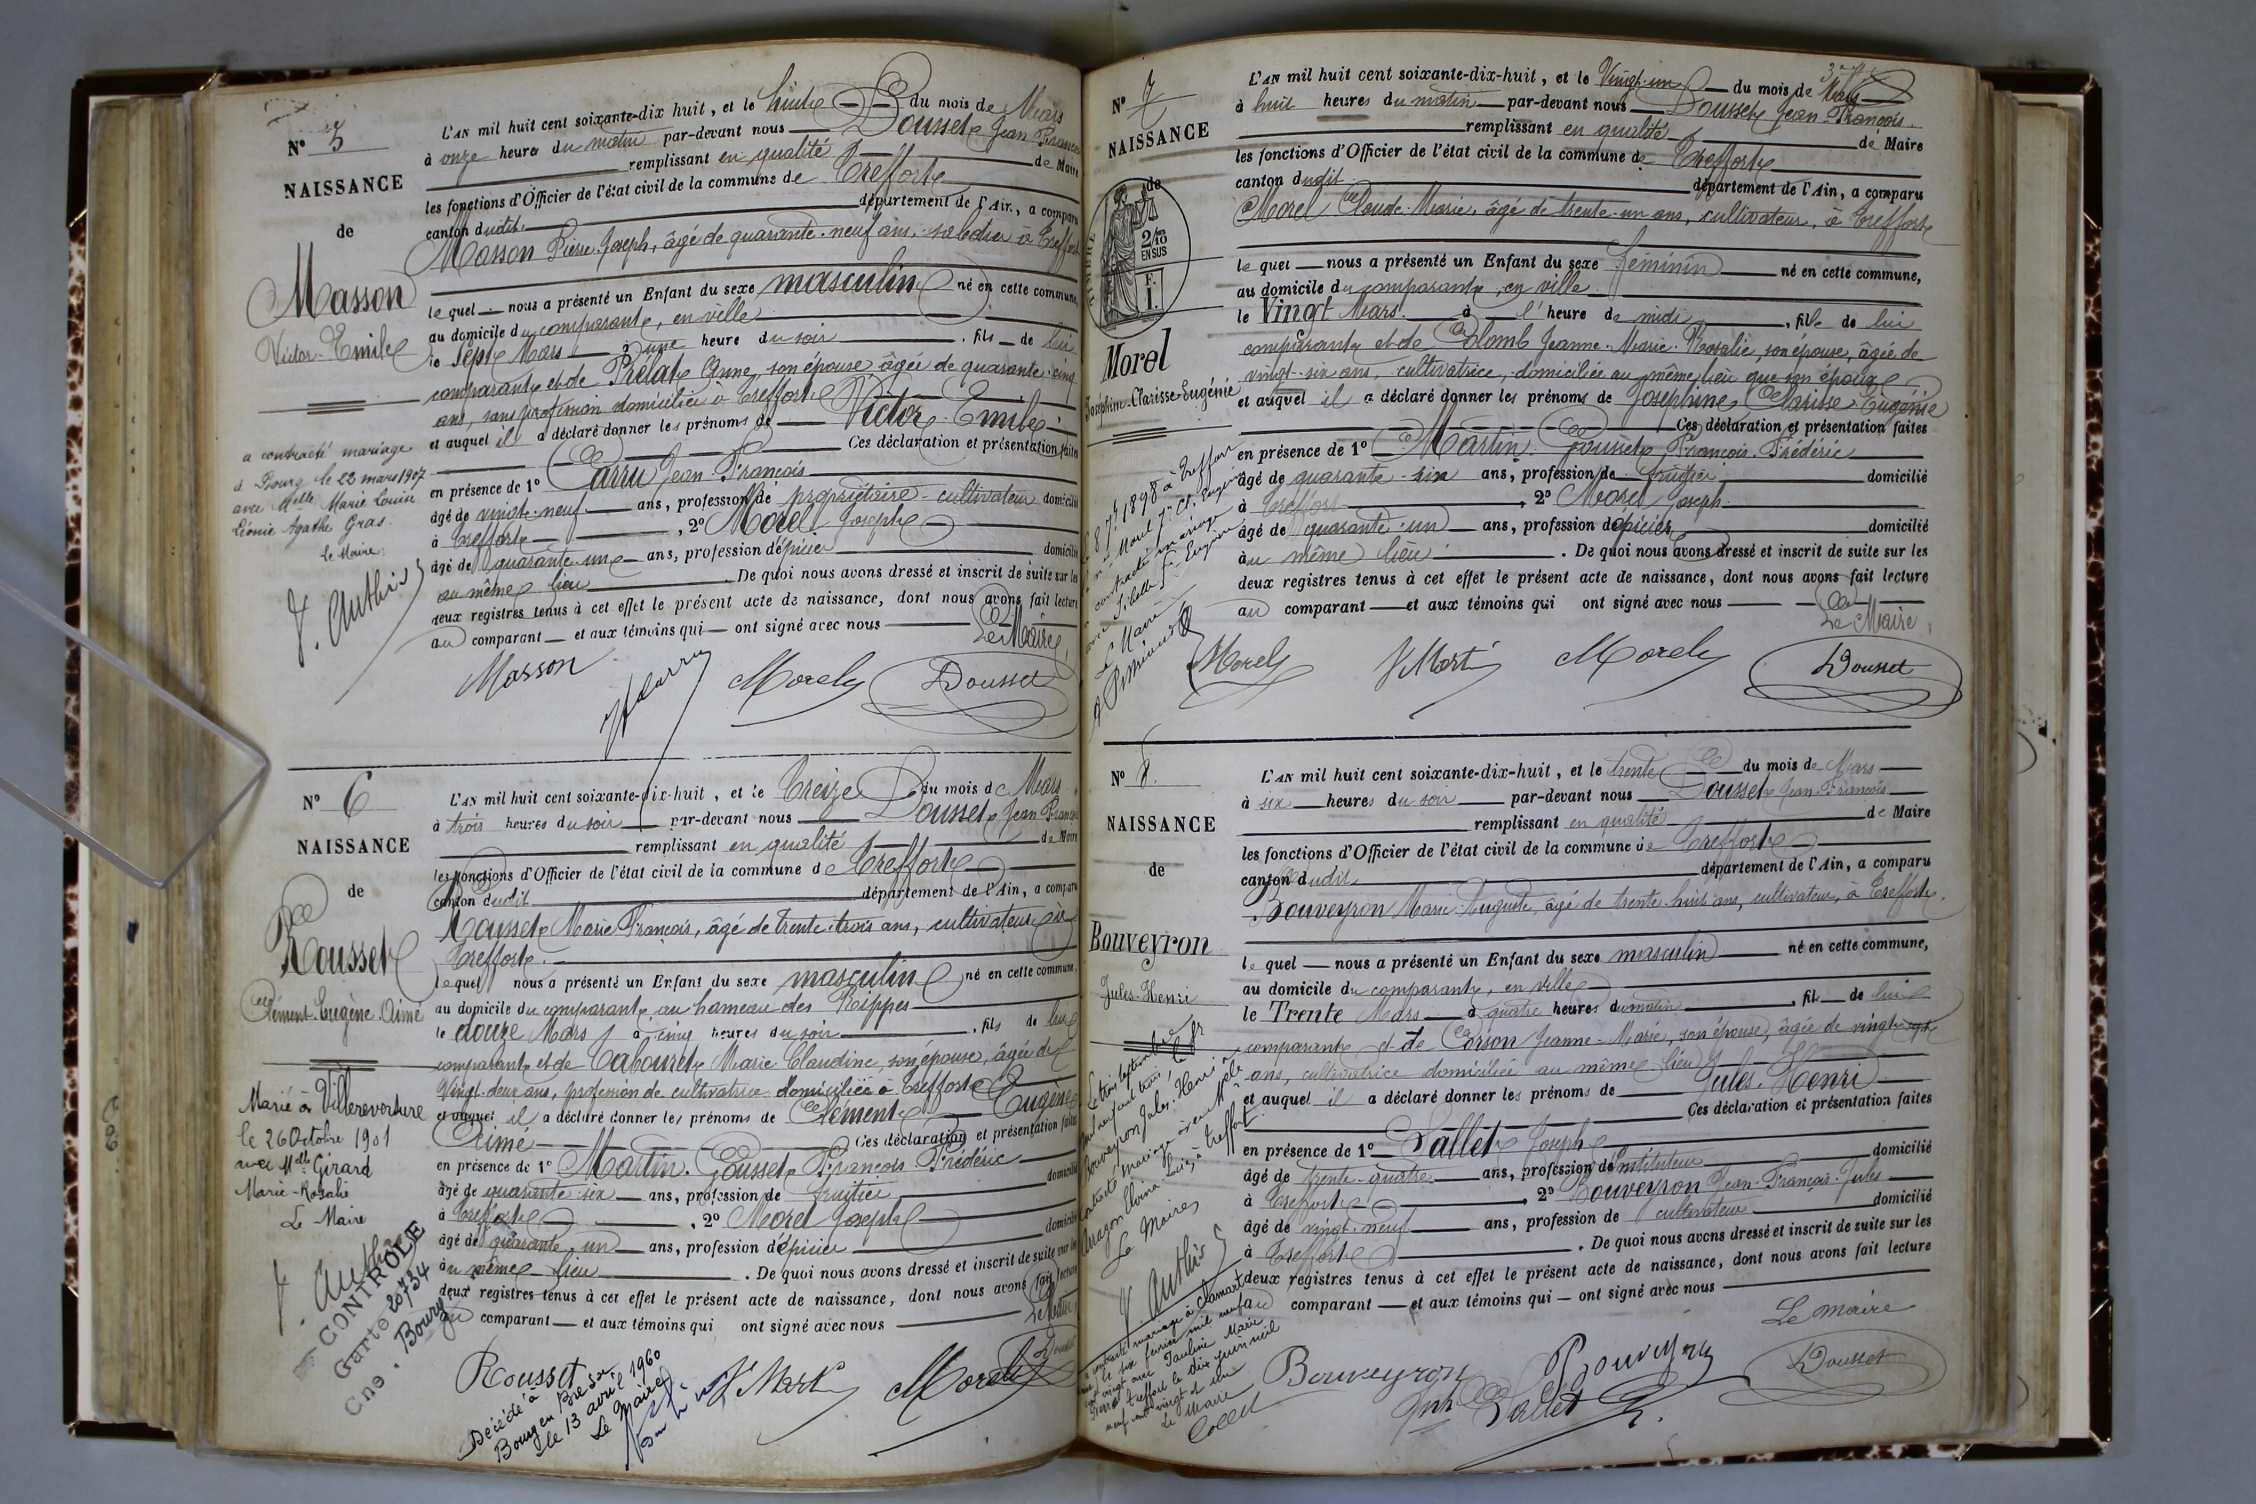 N° 5
NAISSANCE
de
Masson
Victor-Emile
a contracté mariage
à Bourg le 23 mars 1907
avec Melle Marie Louise
Léonie Agathe Gras.
Le Maire
J. Authier
L'AN mil huit cent soixante-dix huit, et le huit du mois de Mars
à onze heures du matin par-devant nous Dousset Jean François
remplissant en qualité de Maire
les fonctions d'Officier de l'état civil de la commune de Treffort
canton dudit département de l'Ain, a comparu
Masson Pierre Joseph, âgé de quarante-neuf ans, à Treffort
le quel nous a présenté un Enfant du sexe masculin né en cette commune,
au domicile du comparant, en ville
le sept Mars à une heure du soir, fils de lui
comparant et de Prélat Anne, son épouse âgée de quarante-cinq
ans, sans profession domiciliée à Treffort
et auquel il a déclaré donner les prénoms de Victor-Emile
Ces déclaration et présentation faites
en présence de 1° Carru Jean-François
âgé de vingt-neuf ans, profession de propriétaire-cultivateur domicilié
à Treffort, 2° Morel Joseph
âgé de quarante-un ans, profession d'épicier domicilié
au même lieu. De quoi nous avons dressé et inscrit de suite sur les
deux registres tenus à cet effet le présent acte de naissance, dont nous avons fait lecture
au comparant et aux témoins qui ont signé avec nous
Le Maire,
Masson Carru Morel Dousset
N° 6
NAISSANCE
de
Rousset
Clément-Eugène-Aimé
Marié à Villereversure
le 26 Octobre 1901
avec Melle Girard
Marie-Rosalie
Le Maire
J. Authier
CONTROLE
Carte 20734
Cne. Bourg
L'AN mil huit cent soixante-dix-huit, et le treize du mois de Mars
à trois heures du soir par-devant nous Dousset Jean François
remplissant en qualité de Maire
les fonctions d'Officier de l'état civil de la commune de Treffort
canton dudit département de l'Ain, a comparu
Rousset Marie François, âgé de trente-trois ans, cultivateur à
Treffort.
lequel nous a présenté un Enfant du sexe masculin né en cette commune,
au domicile du comparant, au hameau des Rippes
le douze Mars à cinq heures du soir, fils de lui
comparant et de Tabouret Marie Claudine, son épouse, âgée de
vingt-deux ans, profession de cultivatrice domiciliée à Treffort
et auquel il a déclaré donner les prénoms de Clément Eugène
Aimé Ces déclaration et présentation faites
en présence de 1° Martin-Gousset François Frédéric
âgé de quarante-six ans, profession de fruitier domicilié
à Treffort, 2° Morel Joseph
âgé de quarante-un ans, profession d'épicier domicilié
au même lieu. De quoi nous avons dressé et inscrit de suite sur les
deux registres tenus à cet effet le présent acte de naissance, dont nous avons fait lecture
au comparant et aux témoins qui ont signé avec nous
Le Maire
Rousset Morel Dousset
Décédé à
Bourg en Bresse
le 13 avril 1960
Le Maire
N° 7
NAISSANCE
de
TIMBRE
2/10
EN SUS
F.
1.
Morel
Joséphine-Clarisse-Eugénie
L'AN mil huit cent soixante-dix-huit, et le vingt-un du mois de Mars
à huit heures du matin par-devant nous Dousset Jean-François
remplissant en qualité de Maire
les fonctions d'Officier de l'état civil de la commune de Treffort
canton dudit département de l'Ain, a comparu
Morel Claude-Marie, âgé de trente-un ans, cultivateur, à Treffort
le quel nous a présenté un Enfant du sexe féminin né en cette commune,
au domicile du comparant, en ville
le Vingt Mars à l'heure de midi, fille de lui
comparant et de Colomb Jeanne-Marie-Rosalie, son épouse, âgée de
vingt-six ans, cultivatrice, domiciliée au même lieu que son époux
et auquel il a déclaré donner les prénoms de Joséphine, Clarisse-Eugénie
Ces déclaration et présentation faites
en présence de 1° Martin-Gousset François-Frédéric
âgé de quarante-six ans, profession de fruitier domicilié
à Treffort, 2° Morel Joseph
âgé de quarante-un ans, profession d'épicier domicilié
au même lieu. De quoi nous avons dressé et inscrit de suite sur les
deux registres tenus à cet effet le présent acte de naissance, dont nous avons fait lecture
au comparant et aux témoins qui ont signé avec nous
Le Maire,
Morel Morel Dousset
N° 8
NAISSANCE
de
Bouveyron
Jules-Henri
Le trois septembre
mil neuf cent trois,
Bouveyron Jules-Henri a
contracté mariage avec Melle
à Treffort
Le Maire
J. Authier
a contracté mariage à Clamart
le six février mil neuf
cent vingt avec Pauline Marie
Treffort le dix juin mil
neuf cent vingt
Le Maire
L'AN mil huit cent soixante-dix-huit, et le trente du mois de Mars
à six heures du soir par-devant nous Dousset Jean-François
remplissant en qualité de Maire
les fonctions d'Officier de l'état civil de la commune de Treffort
canton dudit département de l'Ain, a comparu
Bouveyron Marie-Auguste, âgé de trente-huit ans, cultivateur, à Treffort.
le quel nous a présenté un Enfant du sexe masculin né en cette commune,
au domicile du comparant, en ville
le Trente Mars à quatre heures du matin, fils de lui
comparant et de Corson Jeanne-Marie, son épouse, âgée de vingt-sept
ans, cultivatrice domiciliée au même lieu
et auquel il a déclaré donner les prénoms de Jules-Henri
Ces déclaration et présentation faites
en présence de 1° Sallet Joseph
âgé de trente-quatre ans, profession d'instituteur domicilié
à Treffort, 2° Bouveyron Jean-François-Jules
âgé de vingt-neuf ans, profession de cultivateur domicilié
à Treffort. De quoi nous avons dressé et inscrit de suite sur les
deux registres tenus à cet effet le présent acte de naissance, dont nous avons fait lecture
au comparant et aux témoins qui ont signé avec nous
Le maire
Bouveyron Bouveyron Dousset
Sallet